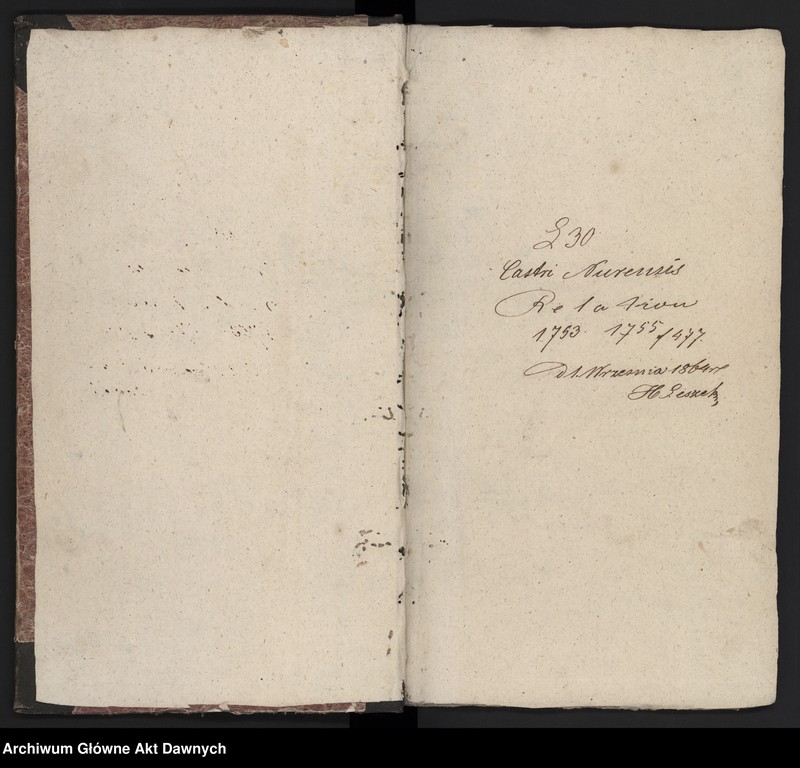 L 30
Castri Nurensis
Relation
1753 1755 f 477.
d 1. Wrzesnia 1864 r
H Leszek
Archiwum Główne Akt Dawnych